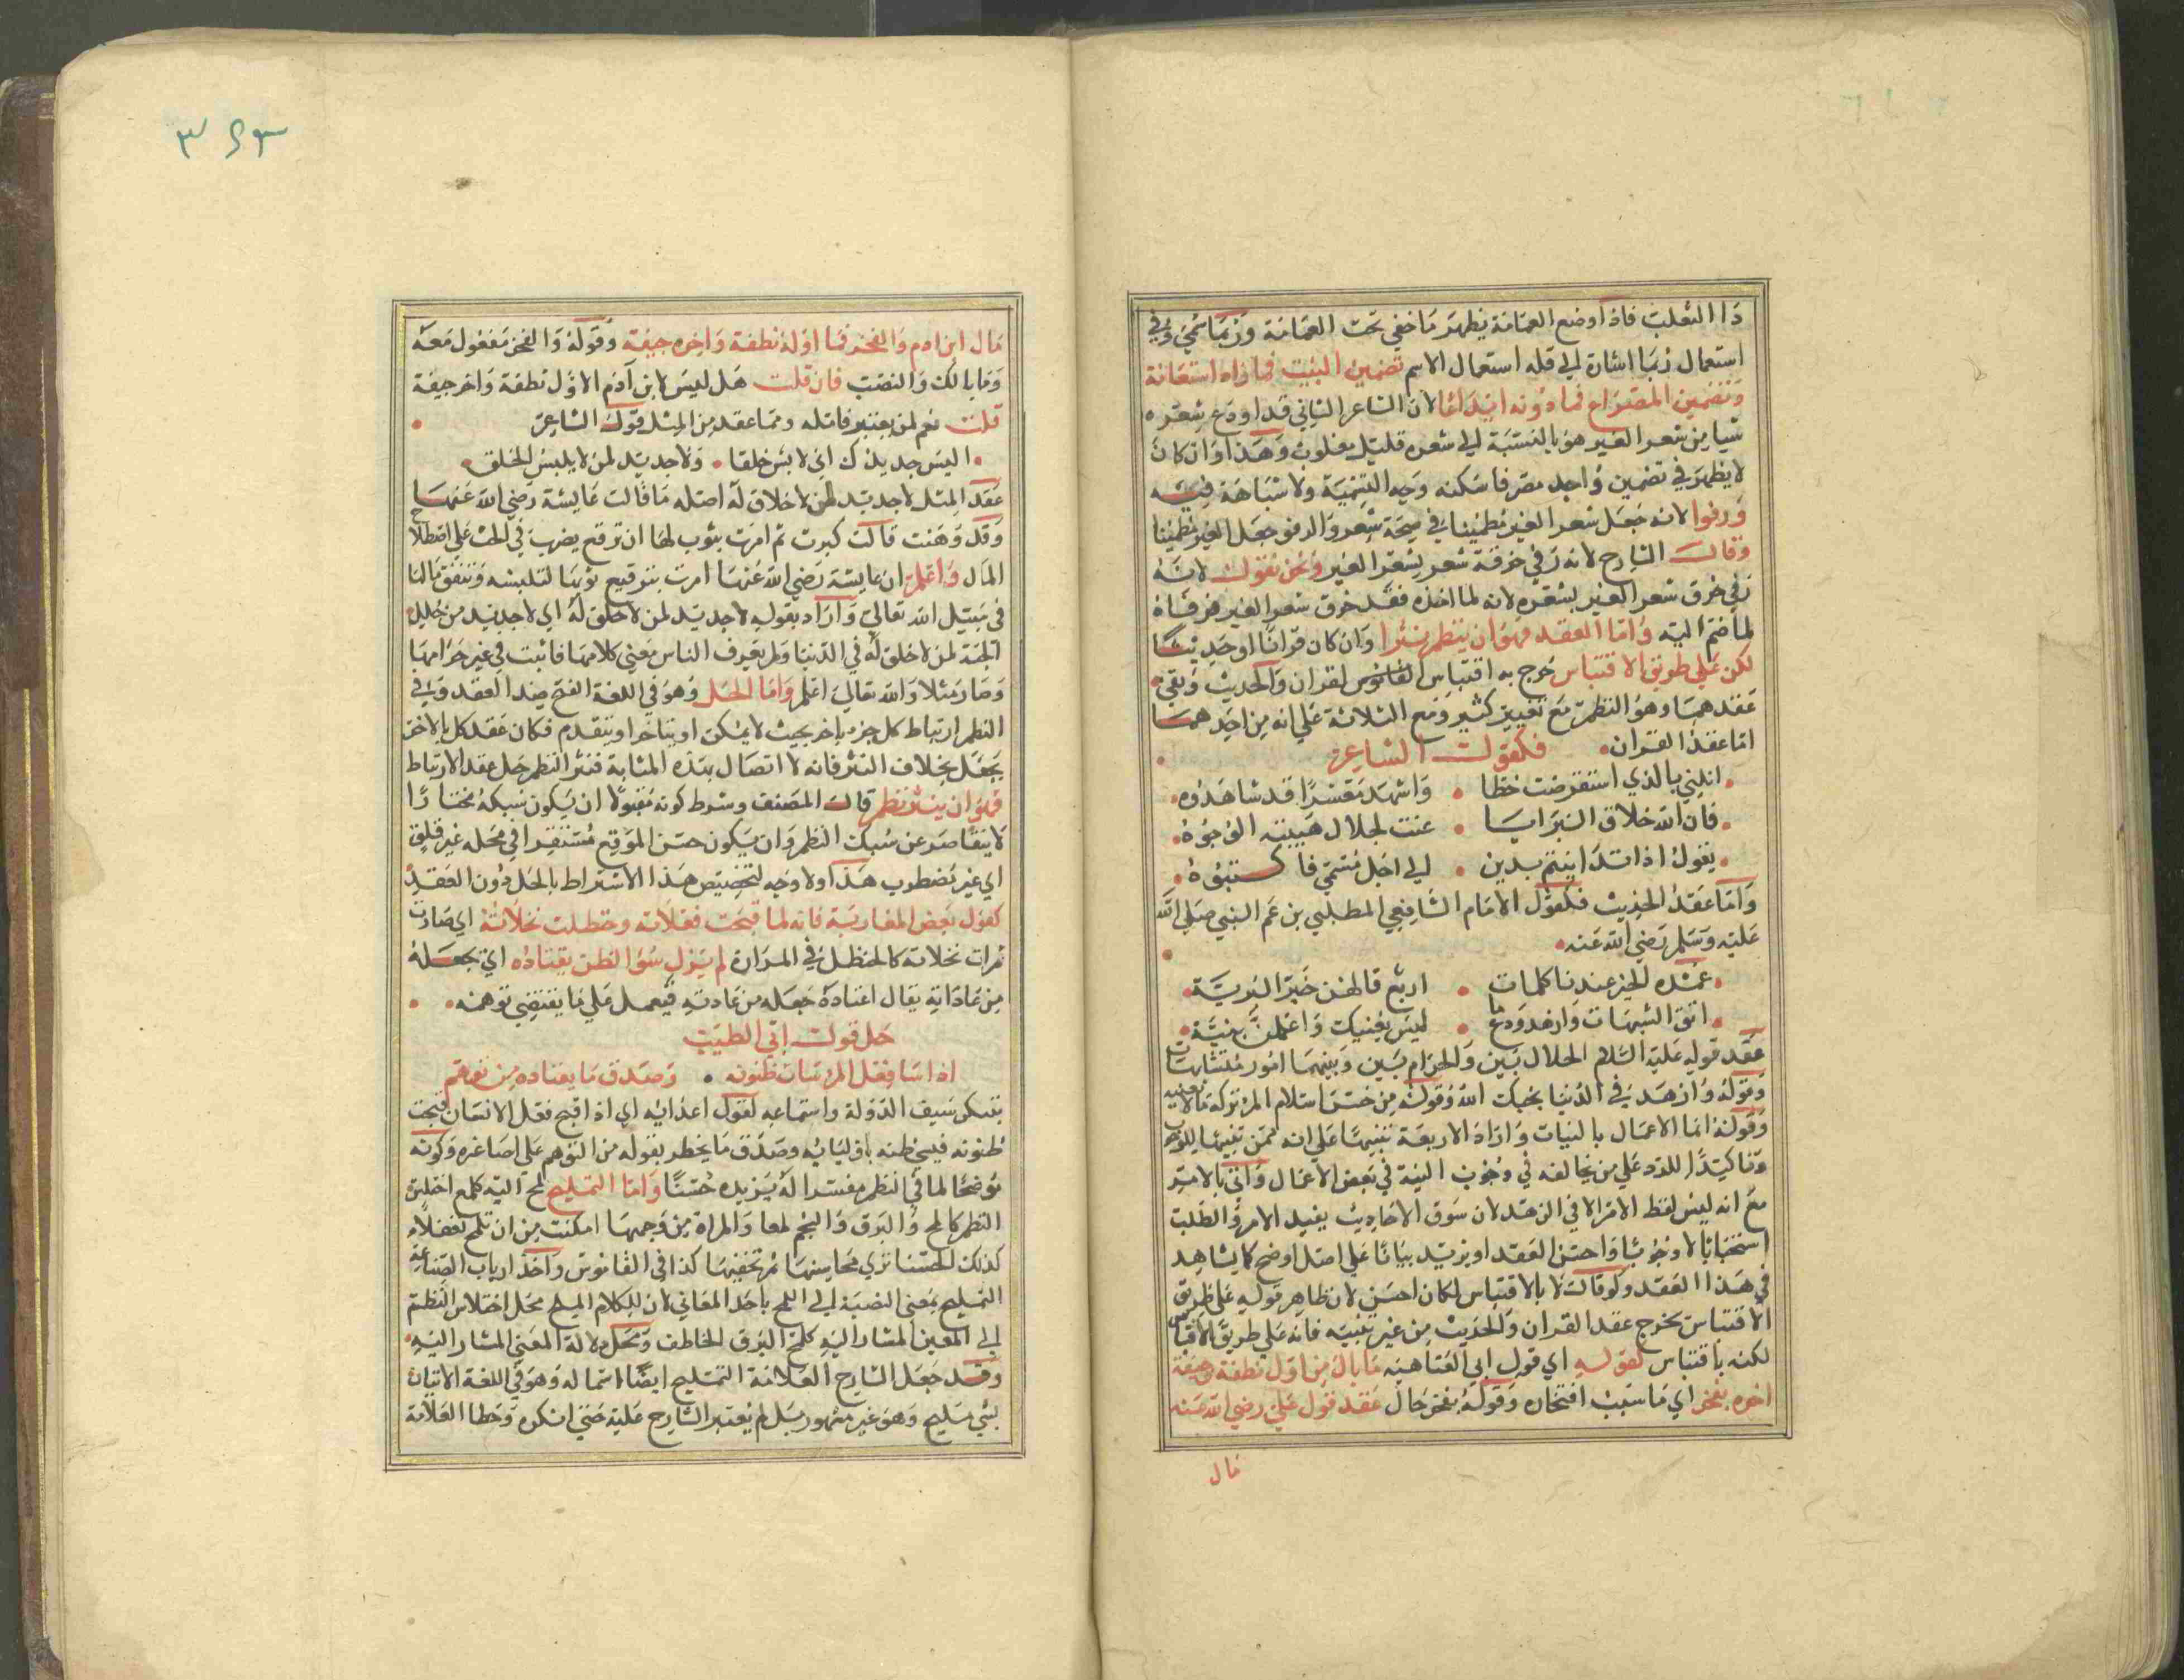 ذا الثعلب فاذا وضع العمامة يظهر ما خفي تحت العمامة وربما سمي وفي
استعمال ربما اشارة الي قلة استعمال الاسم تضمين البيت فما زاد استعانة
وتضمين المصراع فما دونه ايداعا لان الشاعر الثاني قد اودع شعره
شيا من شعر الغير هو بالنسبة الي شعره قليل مغلوب وهذا وان كان
لا يظهر في تضمين واحد مصر فاسكنه وجه التسمية ولا شباهة فيه
ورفوا لانه جعل شعر الغير مطمينا في شعر والرفو جعل الغير مطمينا
وقال الشارح لانه رفي خرقة شعر بشعر الغير ونحن نقول لانه
رفي خرق شعر الغير بشعره لانه لما اخذه فقد خرق شعر الغير فرفاه
لما ضم اليه واما العقد فهو ان ينظم نثرا وان كان قرانا او حديثا
لكن علي طريق الاقتباس خرج به اقتباس القران والحديث وبقي
عقدهما وهو النظم مع تغيير كثير ومع الثلاثة علي انه من احدهما
اما عقد القران فكقول الشاعر
انلني بالذي استقرضت خطا واشهد معشرا قد شاهدوه
فان الله خلاق البرايا عنت لجلال هيبته الوجوه
يقول اذا تداينتم بدين الي اجل مسمي فاكتبوه
واما عقد الحديث فكقول الامام الشافعي المطلبي بن عم النبي صلي الله
عليه وسلم رضي الله عنه
عمدة الخير عندنا كلمات اربع قالهن خير البرية
اتق الشبهات وازهد ودع ما ليس يعنيك واعملن بنية
عقد قوله عليه السلام الحلال بين والحرام بين وبينهما امور متشابهات
وقوله وازهد في الدنيا يحبك الله وقوله من حسن اسلام المرء تركه ما لا يعنيه
وقوله انما الاعمال بالنيات واراد الاربعة تنبيها علي انه
وتاكيدا للرد علي من يخالفه في وجوب النية في بعض الاعمال واتي بالامر
مع انه ليس لفظ الامر الا في الزهد لان سوق الاحاديث يفيد الامر والطلب
استحبابا لا وجوبا واحسن العقد او يزيد بيانا علي اصل اوضح كما يشاهد
في هذا العقد ولو قال لا بالاقتباس لكان احسن لان ظاهر قوله علي طريق
الاقتباس يخرج عقد القران والحديث من غير تنبيه فانه علي طريق الاقتباس
لكنه باقتباس كقوله اي قول ابي العتاهية ما بال من اول نطفة وجيفة
اخره يفخر اي ما سبب افتخاره وقوله يفخر حال عقد قول علي رضي الله عنه
مال
٣٤٣
مال ابن ادم والفخر فما اوله نطفة واخره جيفة وقوله والفخر مفعول معه
وما بالك والنصب فان قلت هل ليس لابن آدم الاول نطفة واخر جيفة
قلت نعم لمن يعتبر فامله ومما عقد من المثل قول الشاعر
اليس جديدك اني لابس خلقا ولا جديد لمن لا يلبس الخلق
عقد المثل لا جديد لمن لا خلاق له اصله ما قالت عايشة رضي الله عنها
وقد وهنت قالت كبرت ثم امرت بثوب لها ان ترقع يضرب في الحث علي اصطلاح
المال واعلم ان عايشة رضي الله عنها امرت بترقيع ثوبها لتلبسه وتنفق مالها
في سبيل الله تعالي واراد بقوله لا جديد لمن لا خلق له اي لا جديد من حلل
الجنة لمن لا خلق له في الدنيا ولم يعرف الناس معني كلامها فاثبت في غير مرامها
وصار مثلا والله تعالي اعلم واما الحل وهو في اللغة الفتح ضد العقد وفي
النظم ارتباط كل جزء باخر بحيث لا يمكن او يتاخر او يتقدم فكان عقد كل بالاخر
بجعل بخلاف النثر فانه لا اتصال بهذه المثابة فنثر النظم حل عقد الارتباط
فهو ان ينثر نظم قال المصنف وشرط كونه مقبولا ان يكون سبكه مختارا
لا يتقاصر عن سبك النظم وان يكون حسن الموقع مستقرا في محله غير قلق
اي غير مضطرب هذا ولا وجه لتخصيص هذا الاشتراط بالحل دون العقد
كقول بعض المغاربة فانه لما قبحت فعلاته وحنظلت نخلاته اي صارت
ثمرات نخلاته كالحنظل في المرارة لم يزل سوء الظن يقتاده اي يجعله
من عاداته يقال اعتاده جعله من عادته فيعمل علي ما يقتضي توهمه
حل قول ابي الطيب
اذا ساء فعل المرء ساءت ظنونه وصدق ما يعتاده من توهم
يشكي سيف الدولة واستماعه لقول اعدائه اي اذا قبح فعل الانسان قبحت
ظنونه فيسيء ظنه باوليائه وصدق ما يخطر بقوله من التوهم علي اصاغره وكونه
موضحا لما في النظم مفسرا له يزيده حسنا واما التمليح لمح اليه كلمع اختلس
النظر كالمح والبرق والنجم لمعا والمراة من وجهها امكنت من ان تلمح تفعل
كذلك الحسنا تري محاسنها ثم تخفيها كذا في القاموس واخذ ارباب الصناعة
التمليح بمعني النسبة الي اللمح باحد المعاني لان للكلام المليح محل اختلاس النظم
الي المعين المشار اليه كلمح البرق الخاطف ومحل دلالة المعني المشار اليه
وقد جعل الشارح العلامة التمليح ايضا اسما له وهو في اللغة الاتيان
بشي مليح وهو غير مشهور بل لم يعتبر الشارح عليه حتي انكره وخطا العلامة